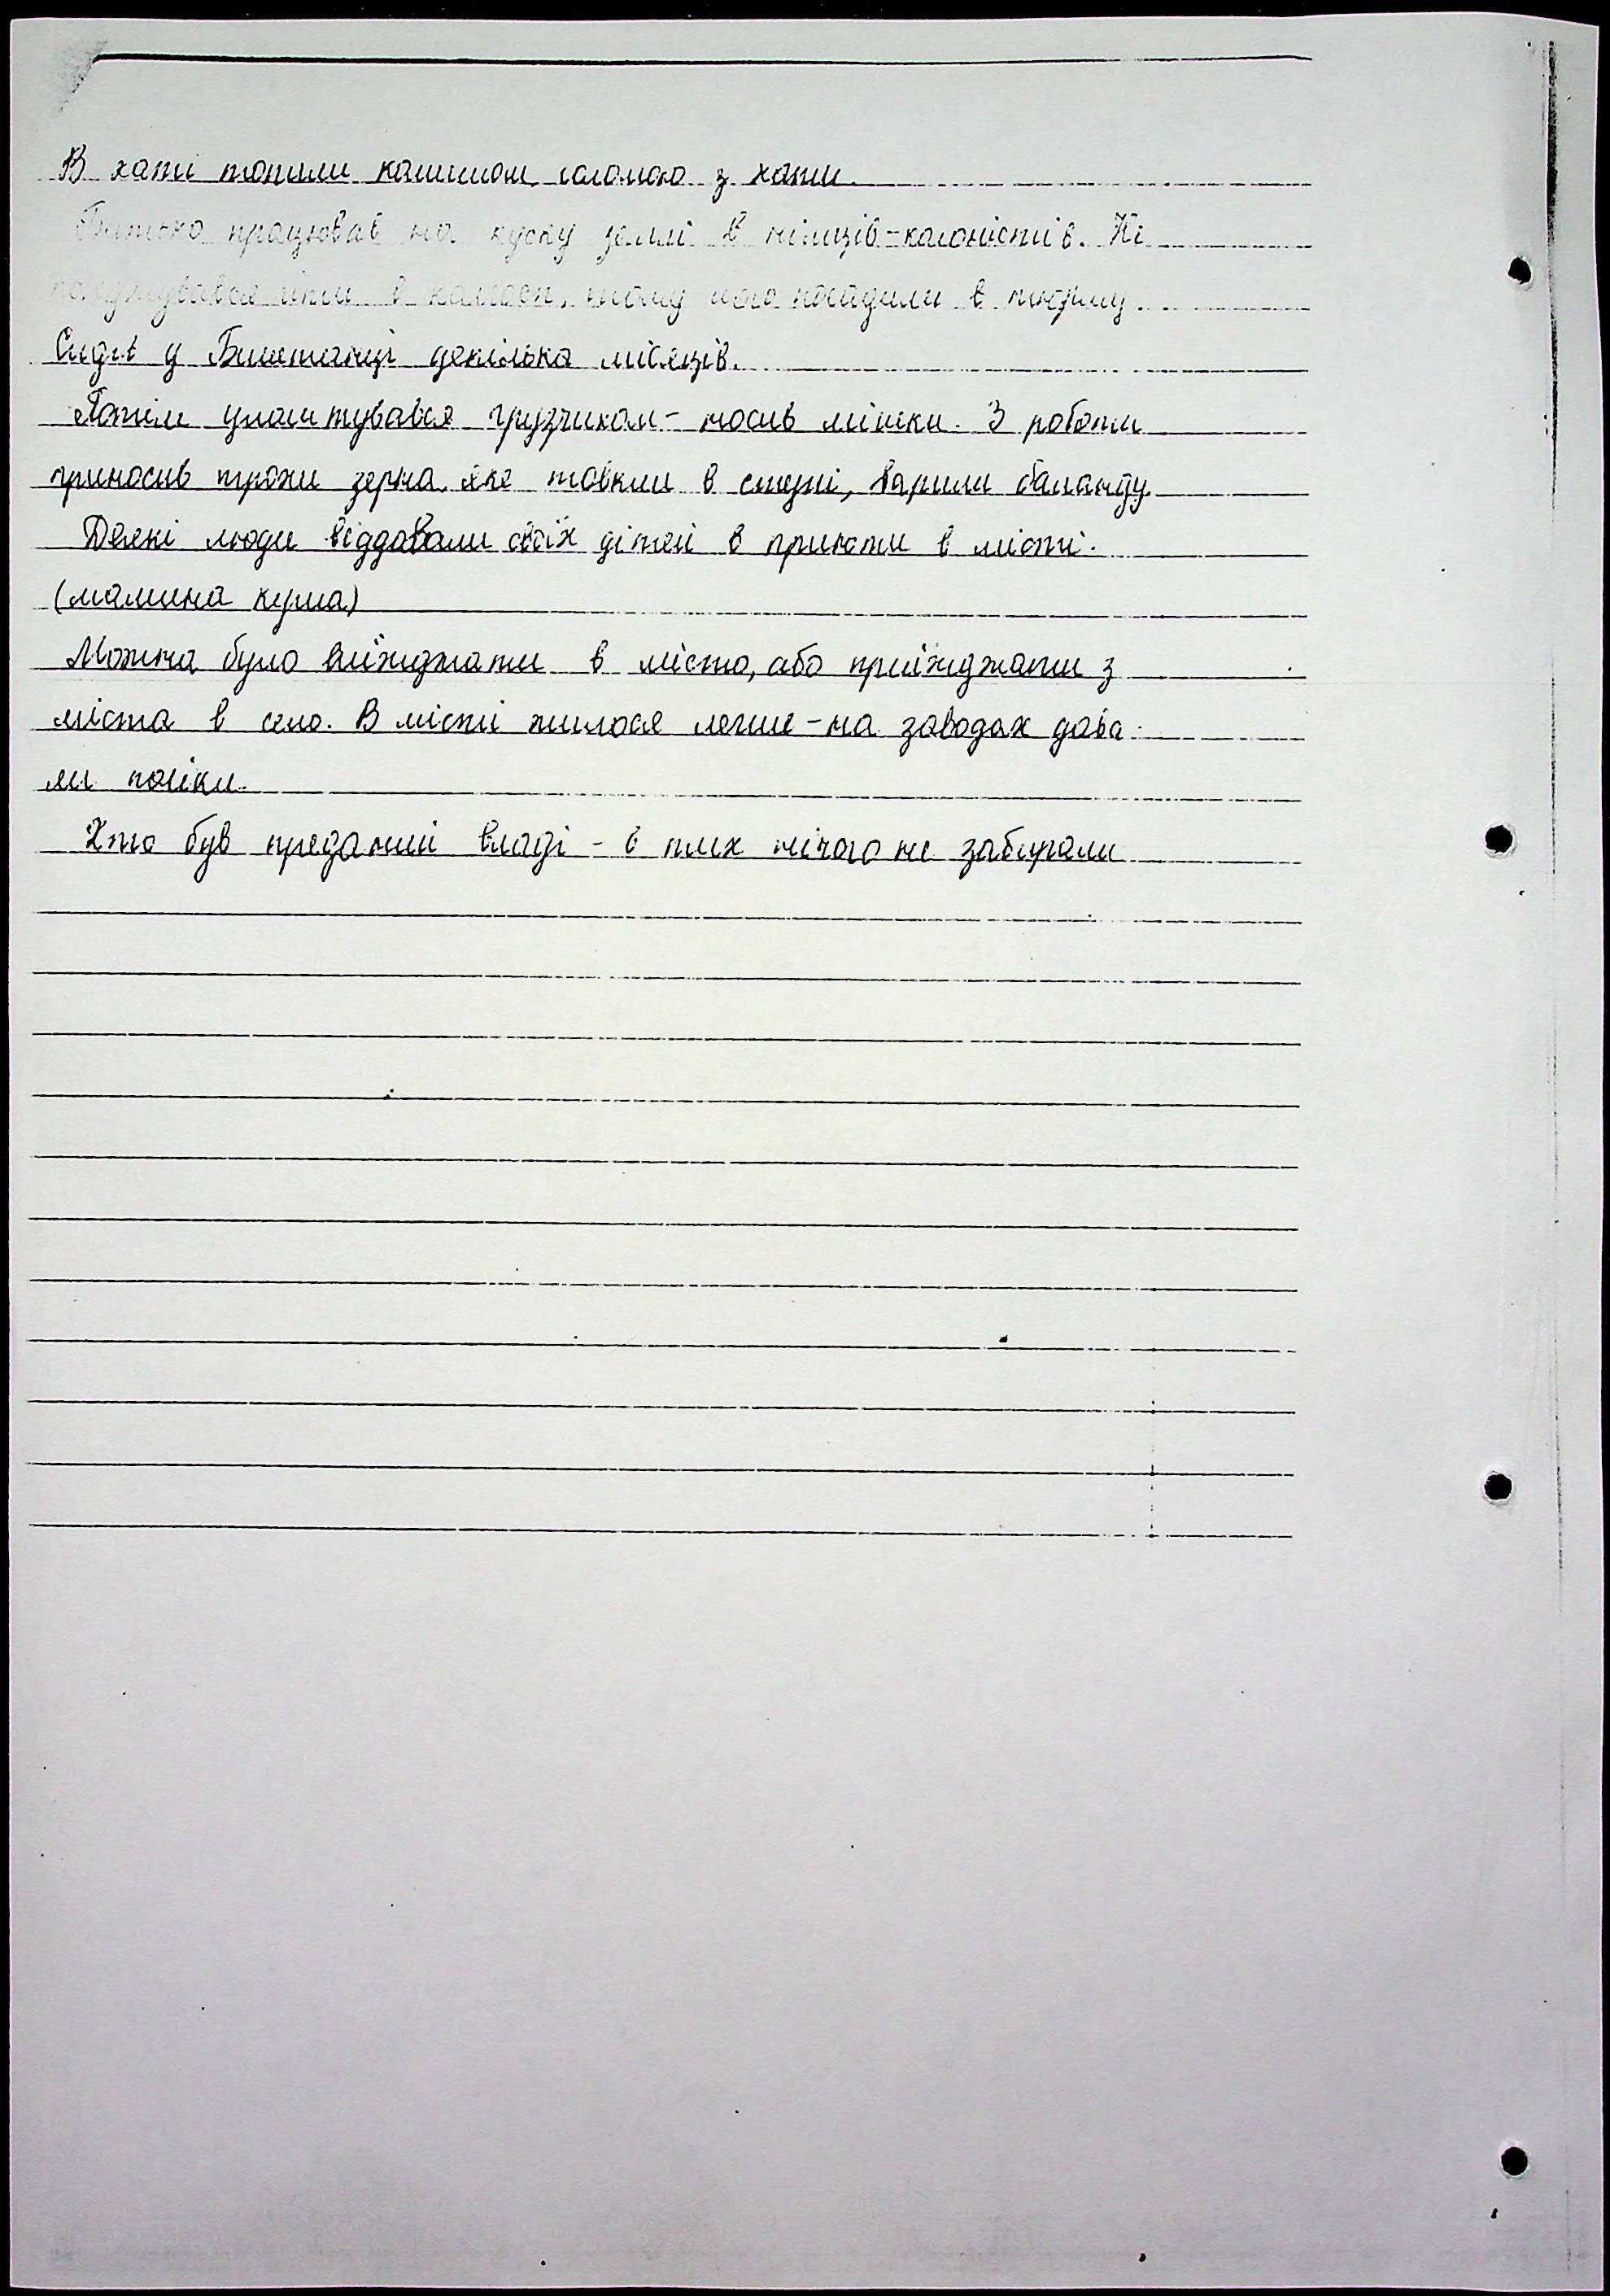 В хаті топили камишом, соломою з хати.
Батько працював на куску землі в німців-колоністів. Не
погоджувався іти в колгосп, тому його посадили в тюрму.
Сидів у Баштанці декілька місяців.
Потім улаштувався грузчиком - носив мішки. З роботи
приносив трохи зерна, яке товкли в ступі, варили баланду.
Деякі люди віддавали своїх дітей в приюти в місті.
(мамина кума)
Можна було виїжджати в місто, або приїжджати з
міста в село. В місті жилося легше - на заводах дава-
ли пайки.
Хто був преданий владі - в тих нічого не забирали